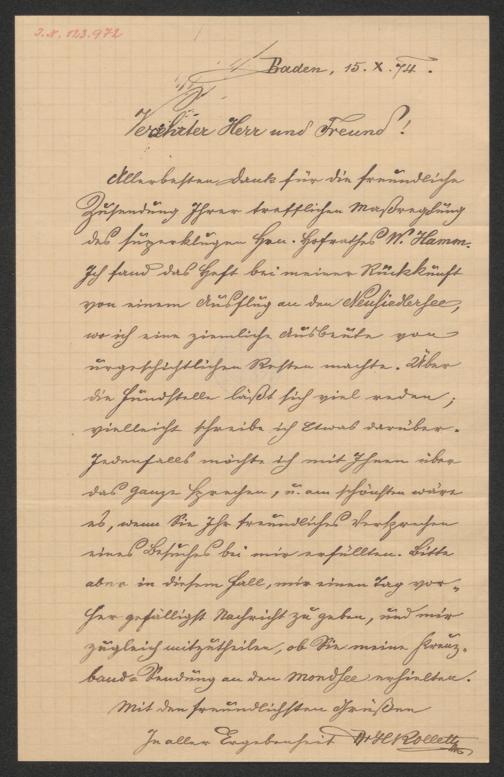 J.N. 123.972
Baden, 15. X. 74.
Verehrter Herr und Freund!
Allerbesten Dank für die freundliche
Zusendung Ihrer trefflichen Maßregelung
des superklugen Hrn. Hofrathes W. Hamm.
Ich fand das Heft bei meiner Rückkunft
von einem Ausflug an den Neusiedlersee,
wo ich eine ziemliche Ausbeute von
urgeschichtlichen Resten machte. Über
die Fundstelle läßt sich viel reden;
vielleicht schreibe ich Etwas darüber.
Jedenfalls möchte ich mit Ihnen über
das Ganze sprechen, u. am schönsten wäre
es, wenn Sie Ihr freundliches Versprechen
eines Besuches bei mir erfüllten. Bitte
aber in diesem Fall, mir einen Tag vor-
her gefälligst Nachricht zu geben, und mir
zugleich mitzutheilen, ob Sie meine Kreuz-
band-Sendung an den Mondsee erhielten.
Mit den freundlichsten Grüßen
In aller Ergebenheit Dr H Rollett